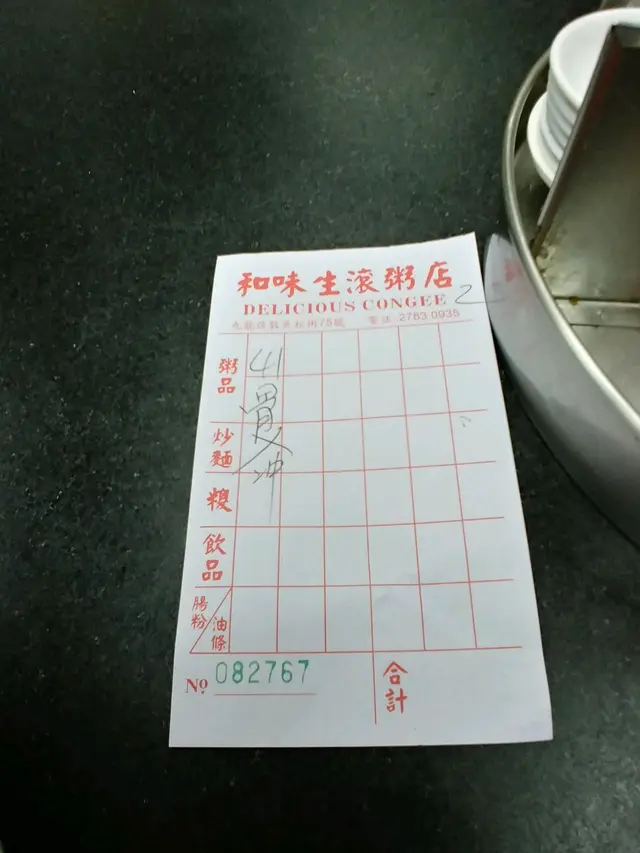 和味生滾粥店
DELICIOUS CONGEE
2
九龍旺角黑布街75號 電話 2783 0935
粥品
41
炒麵
糉
飲品
腸粉
油條
No 082767
合計